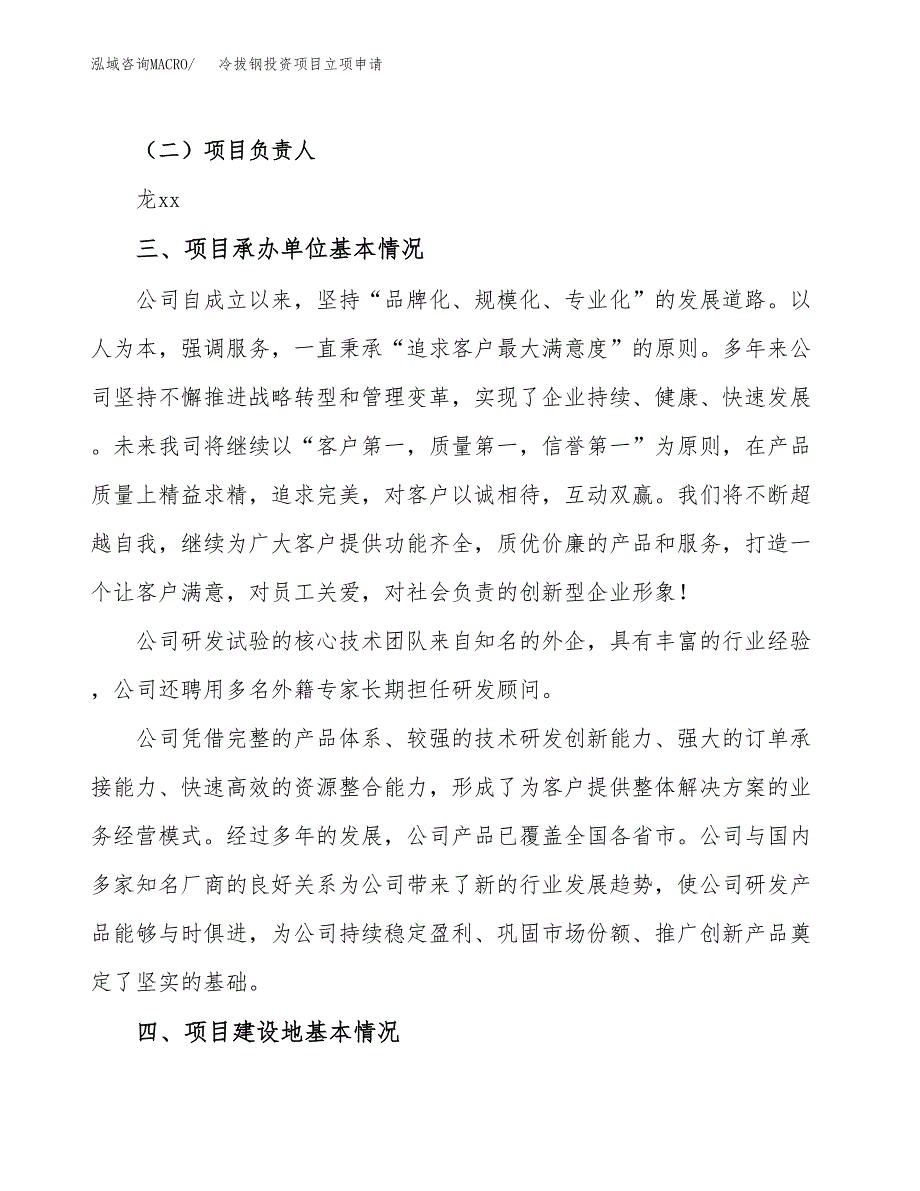 泓域咨询MACRO/ 冷拔钢投资项目立项申请
（二）项目负责人
龙xx
三、项目承办单位基本情况
公司自成立以来，坚持“品牌化、规模化、专业化”的发展道路。以
人为本，强调服务，一直秉承“追求客户最大满意度”的原则。多年来公
司坚持不懈推进战略转型和管理变革，实现了企业持续、健康、快速发展
。未来我司将继续以“客户第一，质量第一，信誉第一”为原则，在产品
质量上精益求精，追求完美，对客户以诚相待，互动双赢。我们将不断超
越自我，继续为广大客户提供功能齐全，质优价廉的产品和服务，打造一
个让客户满意，对员工关爱，对社会负责的创新型企业形象！
公司研发试验的核心技术团队来自知名的外企，具有丰富的行业经验
，公司还聘用多名外籍专家长期担任研发顾问。
公司凭借完整的产品体系、较强的技术研发创新能力、强大的订单承
接能力、快速高效的资源整合能力，形成了为客户提供整体解决方案的业
务经营模式。经过多年的发展，公司产品已覆盖全国各省市。公司与国内
多家知名厂商的良好关系为公司带来了新的行业发展趋势，使公司研发产
品能够与时俱进，为公司持续稳定盈利、巩固市场份额、推广创新产品奠
定了坚实的基础。
四、项目建设地基本情况